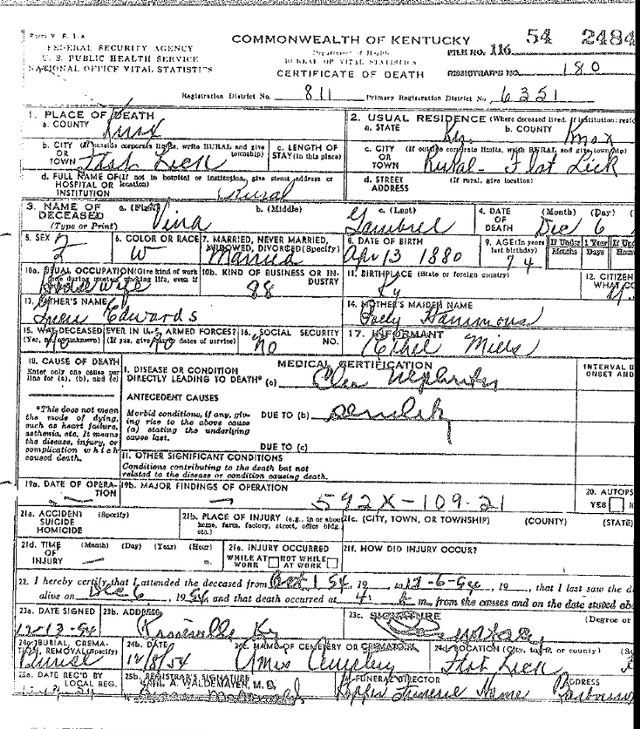 Form V. S. 1-A
FEDERAL SECURITY AGENCY
U. S. PUBLIC HEALTH SERVICE
NATIONAL OFFICE VITAL STATISTICS
COMMONWEALTH OF KENTUCKY
Department of Health
BUREAU OF VITAL STATISTICS
CERTIFICATE OF DEATH
FILE NO. 116 54 2484
REGISTRAR'S NO. 180
Registration District No. 811 Primary Registration District No. 6351
1. PLACE OF DEATH
a. COUNTY Knox
2. USUAL RESIDENCE (Where deceased lived. If institution:
a. STATE Ky b. COUNTY Knox
b. CITY (If outside corporate limits, write RURAL and give township)
OR TOWN Flat Lick
c. LENGTH OF STAY (in this place)
c. CITY (If outside corporate limits, write RURAL and give township)
OR TOWN Rural- Flat Lick
d. FULL NAME OF (If not in hospital or institution, give street address or location)
HOSPITAL OR INSTITUTION Rural
d. STREET ADDRESS (If rural, give location)
3. NAME OF DECEASED (Type or Print)
a. (First) Vina b. (Middle) c. (Last) Gambrel
4. DATE OF DEATH (Month) (Day) Dec 6
5. SEX F
6. COLOR OR RACE W
7. MARRIED, NEVER MARRIED, WIDOWED, DIVORCED (Specify) Married
8. DATE OF BIRTH Apr 13 1880
9. AGE (In years last birthday) 74
If Under 1 Year Months Days
If Under Hours
10a. USUAL OCCUPATION (Give kind of work done during most of working life, even if Housewife
10b. KIND OF BUSINESS OR INDUSTRY 98
11. BIRTHPLACE (State or foreign country) Ky
12. CITIZEN
13. FATHER'S NAME Edwards
14. MOTHER'S MAIDEN NAME Polly Hammons
15. WAS DECEASED EVER IN U. S. ARMED FORCES?
(Yes, no, or unknown) (If yes, give war or dates of service) No
16. SOCIAL SECURITY NO. No
17. INFORMANT Ethel Mills
18. CAUSE OF DEATH
Enter only one cause per line for (a), (b), and (c)
MEDICAL CERTIFICATION
INTERVAL B
ONSET AND
I. DISEASE OR CONDITION DIRECTLY LEADING TO DEATH* (a) Nephritis
*This does not mean the mode of dying, such as heart failure, asthenia, etc. It means the disease, injury, or complication which caused death.
ANTECEDENT CAUSES
Morbid conditions, if any, giving rise to the above cause (a) stating the underlying cause last.
DUE TO (b) Senility
DUE TO (c)
II. OTHER SIGNIFICANT CONDITIONS
Conditions contributing to the death but not related to the disease or condition causing death.
19a. DATE OF OPERATION
19b. MAJOR FINDINGS OF OPERATION
592X-109-21
20. AUTOPS
YES
21a. ACCIDENT SUICIDE HOMICIDE (Specify)
21b. PLACE OF INJURY (e.g., in or about home, farm, factory, street, office bldg. etc.)
21c. (CITY, TOWN, OR TOWNSHIP) (COUNTY) (STATE)
21d. TIME OF INJURY (Month) (Day) (Year) (Hour) m.
21e. INJURY OCCURRED
WHILE AT WORK NOT WHILE AT WORK
21f. HOW DID INJURY OCCUR?
22. I hereby certify that I attended the deceased from 1 54, 19 to 12-6-54, 19 , that I last saw the d
alive on Dec 6, 1954 and that death occurred at 4 m., from the causes and on the date stated abo
23a. DATE SIGNED 12-13-54
23b. ADDRESS Ky
23c. SIGNATURE (Degree or
24a. BURIAL, CREMATION, REMOVAL (Specify) Burial
24b. DATE 12/8/54
24c. NAME OF CEMETERY OR CREMATORY Cemetery
24d. LOCATION (City, town, or county) Flat Lick
25a. DATE REC'D BY LOCAL REG.
25b. REGISTRAR'S SIGNATURE
A. WALDEMAYER, M. D.
FUNERAL DIRECTOR Funeral Home
ADDRESS